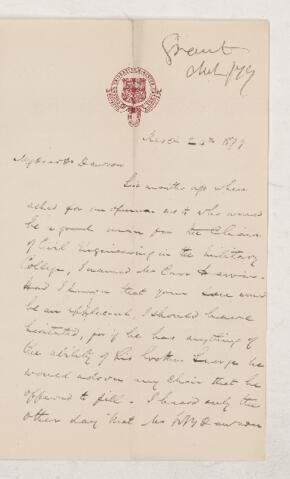 Grant
March 24th 1879
My dear Dr Dawson
Six months ago when
asked for an opinion as to who would
be a good man for the Chair
of Civil Engineering in the Military
College, I named Mr Carr
Had I known that your son would
be an applicant, I should have
hesitated, for if he has anything of
the ability of his brother George he
would adorn any Chair that he
offered to fill. I heard only the
other day that Mr Wm Dawson